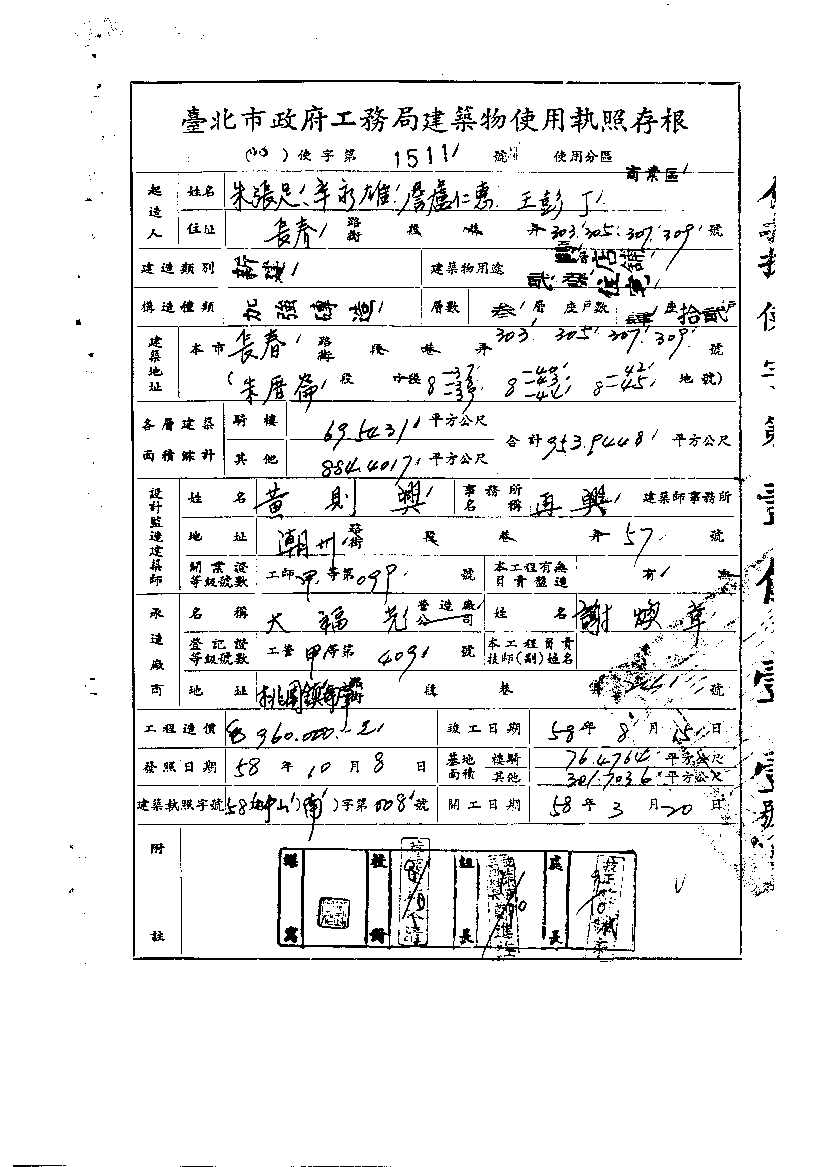 臺北市政府工務局建築物使用執照存根
使字第 1511 號 使用分區 商業區
起造人 姓名 朱張足、辛永雄、詹盧仁惠、王彭丁
住址 長春 路街 段 巷 弄 303.305.307.309 號
建造類別 新建 建築物用途 店舖 住宅
構造種類 加強磚造 層數 叁層 座戶數 肆座拾貳戶
建築地址 本市 長春 路街 段 巷 弄 303 305 307 309 號
(朱厝崙 段 小段 8-37 8-39 8-43 8-44 8-42 8-45 地號)
各層建築面積綜計 騎樓 69.5431 平方公尺 合計 953.9448 平方公尺
其他 884.4017 平方公尺
設計監造建築師 姓名 黃則興 事務所名稱 再興 建築師事務所
地址 潮州 路街 段 巷 弄 57 號
開業證等級號數 工師甲等第099號 本工程有無負責監造 有 無
承造廠商 名稱 大福 營造廠公司 姓名 謝煥章
登記證等級號數 工營甲等第409號 本工程負責技師(副)姓名
地址 桃園鎮 路街 段 巷 弄 號
工程造價 960.000 竣工日期 58年8月15日
發照日期 58年10月8日 基地面積 樓騎 76.4764 平方公尺
其他 301.7036 平方公尺
建築執照字號 58 中山(南)字第008號 開工日期 58年3月20日
附註
繕寫 校對 組長 處長